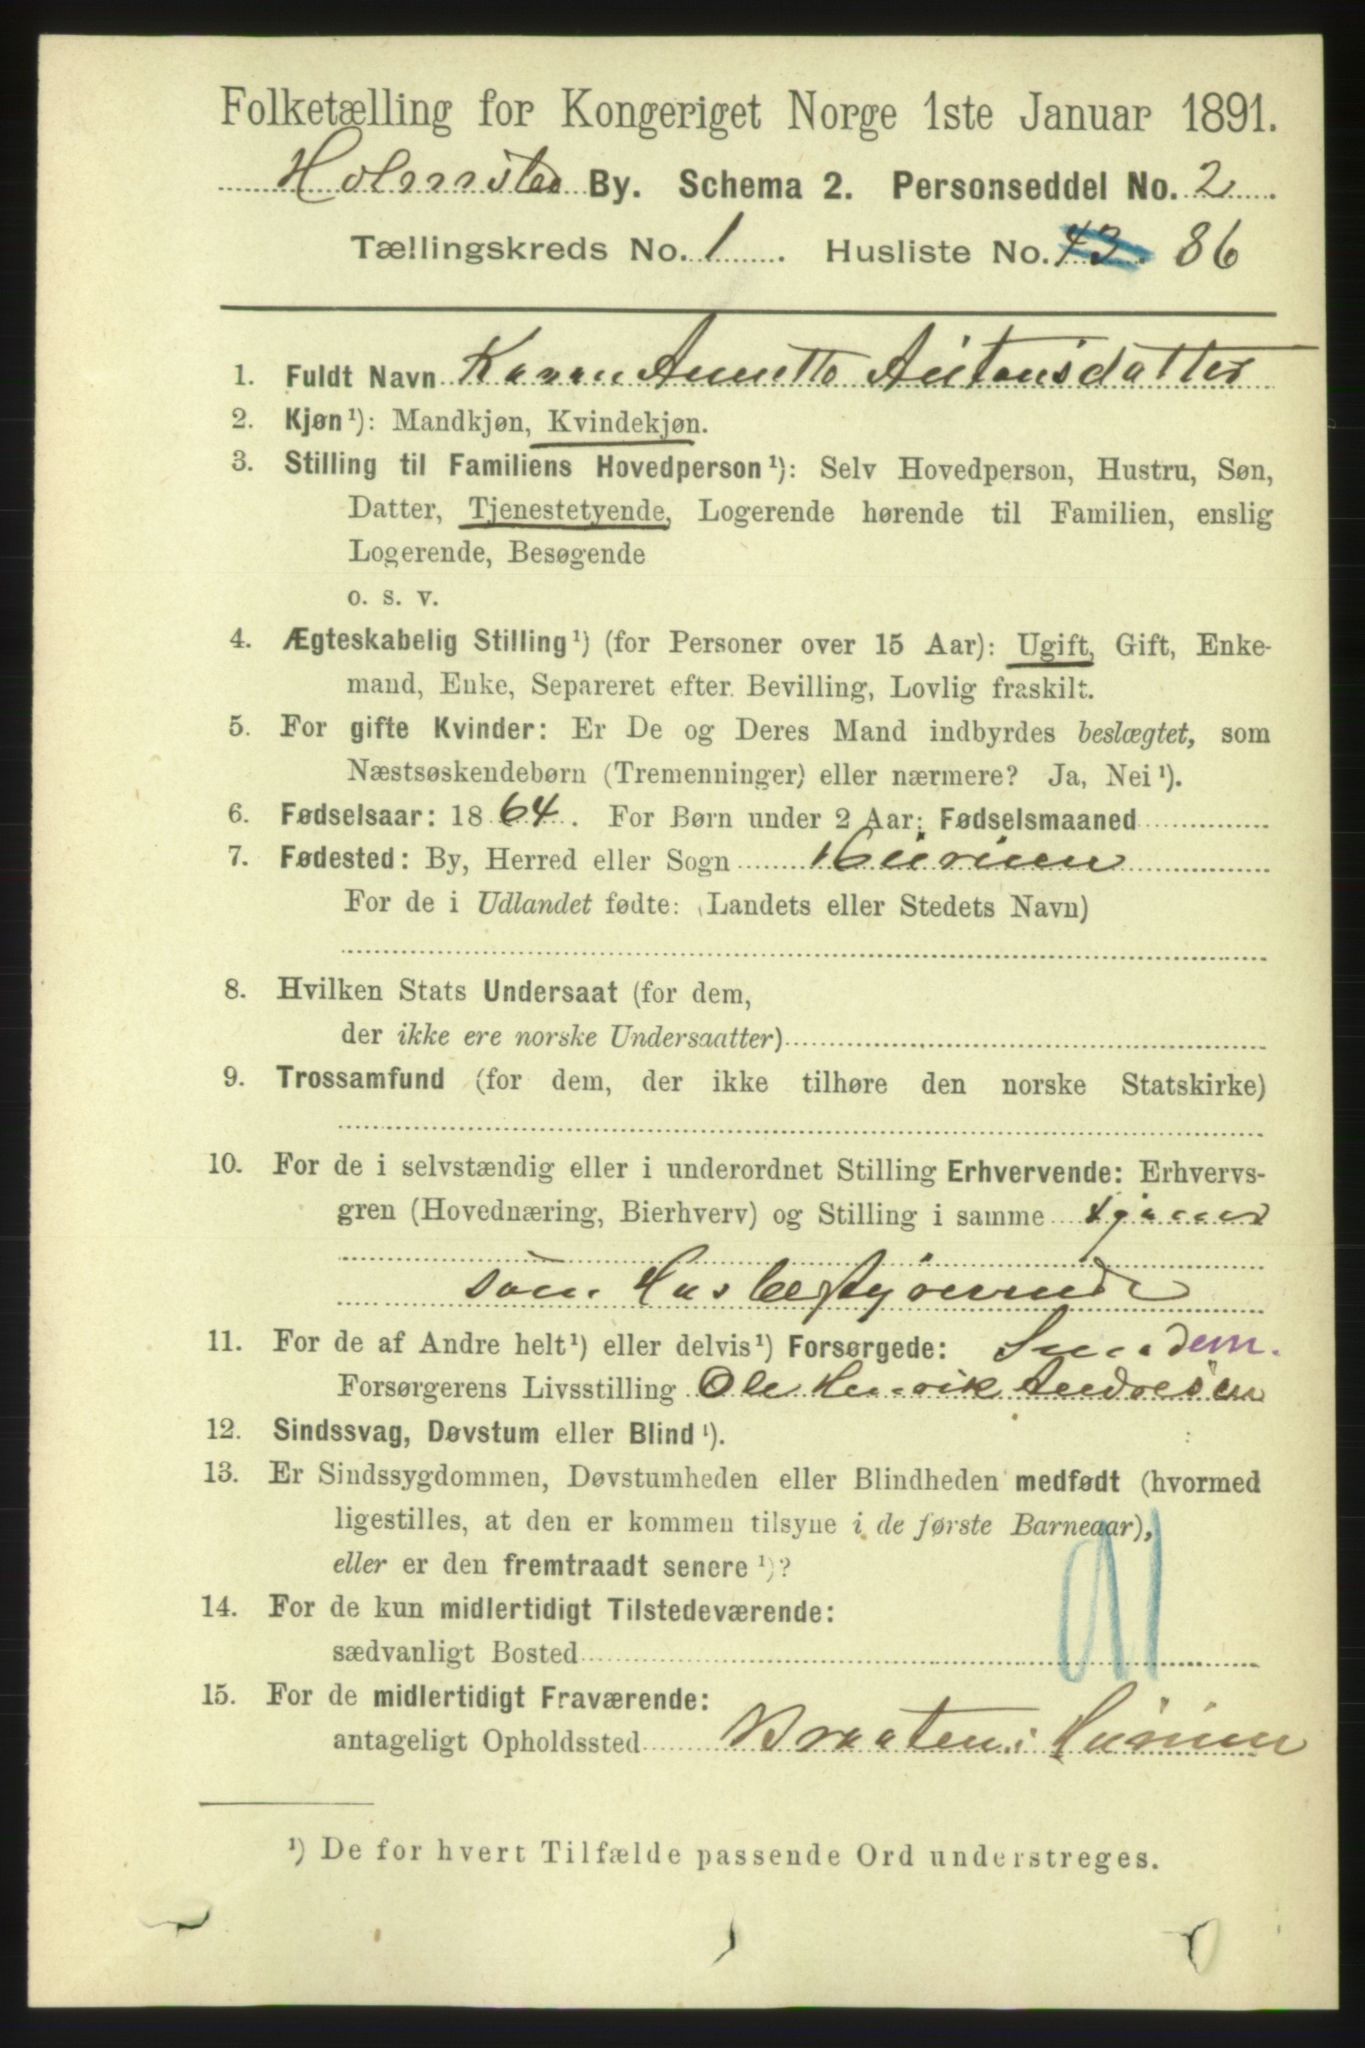 Folketælling for Kongeriget Norge 1ste Januar 1891.
Holmestr By. Schema 2. Personseddel No. 2
Tællingskreds No. 1. Husliste No. 43. 86
1. Fuldt Navn Karen Annette Antonsdatter
2. Kjøn ¹): Mandkjøn, Kvindekjøn.
3. Stilling til Familiens Hovedperson ¹): Selv Hovedperson, Hustru, Søn,
Datter, Tjenestetyende, Logerende hørende til Familien, enslig
Logerende, Besøgende
o. s. v.
4. Ægteskabelig Stilling ¹) (for Personer over 15 Aar): Ugift, Gift, Enke-
mand, Enke, Separeret efter Bevilling, Lovlig fraskilt.
5. For gifte Kvinder: Er De og Deres Mand indbyrdes beslægtet, som
Næstsøskendebørn (Tremenninger) eller nærmere? Ja, Nei ¹).
6. Fødselsaar: 1864. For Børn under 2 Aar: Fødselsmaaned
7. Fødested: By, Herred eller Sogn Hurum
For de i Udlandet fødte: (Landets eller Stedets Navn)
8. Hvilken Stats Undersaat (for dem,
der ikke ere norske Undersaatter)
9. Trossamfund (for dem, der ikke tilhøre den norske Statskirke)
10. For de i selvstændig eller i underordnet Stilling Erhvervende: Erhvervs-
gren (Hovednæring, Bierhverv) og Stilling i samme tjener
som Husbestyrerinde
11. For de af Andre helt ¹) eller delvis ¹) Forsørgede:
Forsørgerens Livsstilling Ole Henrik Andresen
12. Sindssvag, Døvstum eller Blind ¹).
13. Er Sindssygdommen, Døvstumheden eller Blindheden medfødt (hvormed
ligestilles, at den er kommen tilsyne i de første Barneaar),
eller er den fremtraadt senere ¹)?
14. For de kun midlertidigt Tilstedeværende:
sædvanligt Bosted
91
15. For de midlertidigt Fraværende:
antageligt Opholdssted Braaten i Hurum
¹) De for hvert Tilfælde passende Ord understreges.